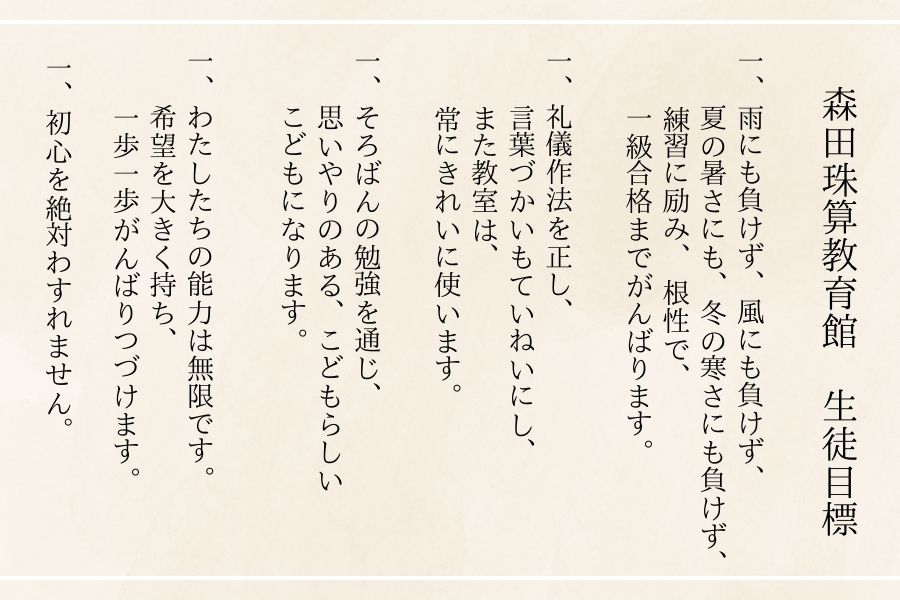 森田珠算教育館　生徒目標
一、雨にも負けず、風にも負けず、
夏の暑さにも、冬の寒さにも負けず、
練習に励み、根性で、
一級合格までがんばります。
一、礼儀作法を正し、
言葉づかいもていねいにし、
また教室は、
常にきれいに使います。
一、そろばんの勉強を通じ、
思いやりのある、こどもらしい
こどもになります。
一、わたしたちの能力は無限です。
希望を大きく持ち、
一歩一歩がんばりつづけます。
一、初心を絶対わすれません。